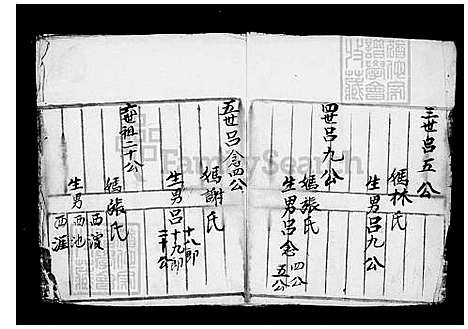 三世呂五公
媽林氏
生男呂九公
四世呂九公
媽張氏
生男呂念四公
五公
五世呂念四公
媽謝氏
生男呂十八郎
十九郎
二十公
六世祖二十公
媽張氏
生男西湲
西池
西涯
FamilySearch